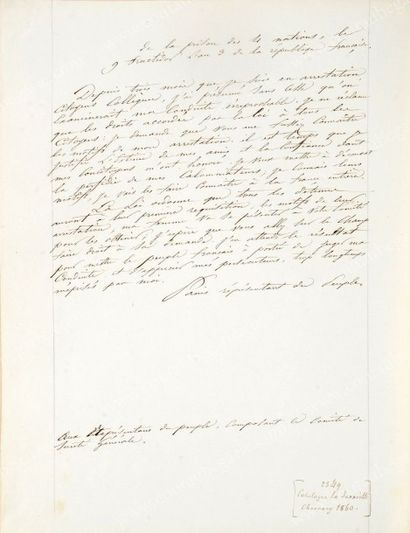 de la prison des 4 nations, le
9 fructidor l'an 3 de la république française.
Depuis trois mois que je suis en arrestation
Citoyens Collègues, j'ai présumé sans cesse qu'on
examinerait ma Conduite irréprochable, je ne réclame
que les droits accordés par la loi à tous les
Citoyens, je demande que vous me fassiez Connaitre
les motifs de mon arrestation. il est temps que je
justifie l'estime de mes amis et la Confiance dont
mes Concitoyens m'ont honoré. je veux mettre à découvert
la perfidie de mes Calomniateurs, je connais leurs
motifs, je vais les faire Connaitre à la france entière
La Loi ordonne que tous les détenus
auront à leur première requisition les motifs de leur
arrestation, ma femme va se présenter à votre Comité
pour les obtenir, j'espère que vous allez sur le Champ
faire droit à sa demande. j'en attends le résultat
pour mettre le peuple français à portée de juger ma
Conduite et d'apprécier mes persécuteurs, trop longtemps
méprisés par moi.
Panis représentant du Peuple.
Aux Représentans du peuple, Composant le Comité de
Sureté Générale.
Catalogue
Charavay 1860.